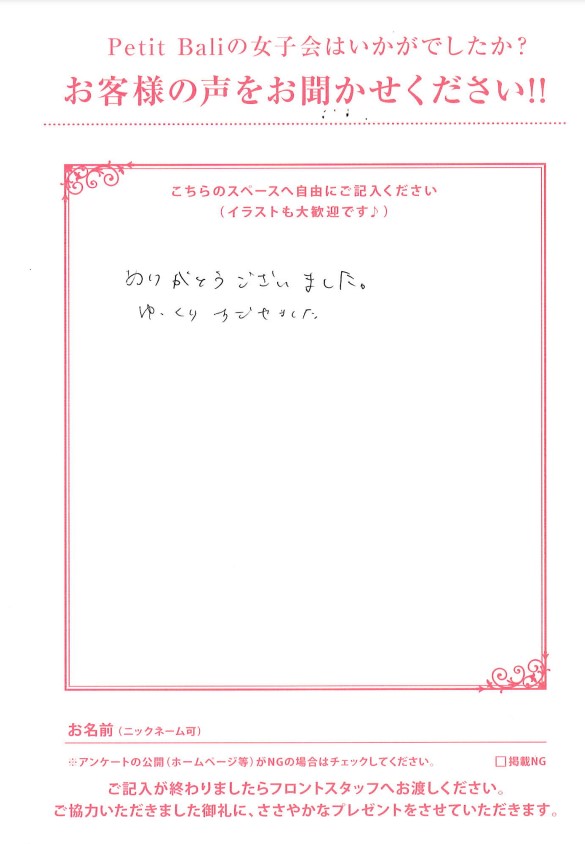 Petit Baliの女子会はいかがでしたか？
お客様の声をお聞かせください!!
こちらのスペースへ自由にご記入ください
（イラストも大歓迎です♪）
ありがとうございました。
ゆっくりすごせました
お名前（ニックネーム可）
※アンケートの公開（ホームページ等）がNGの場合はチェックしてください。 □掲載NG
ご記入が終わりましたらフロントスタッフへお渡しください。
ご協力いただきました御礼に、ささやかなプレゼントをさせていただきます。